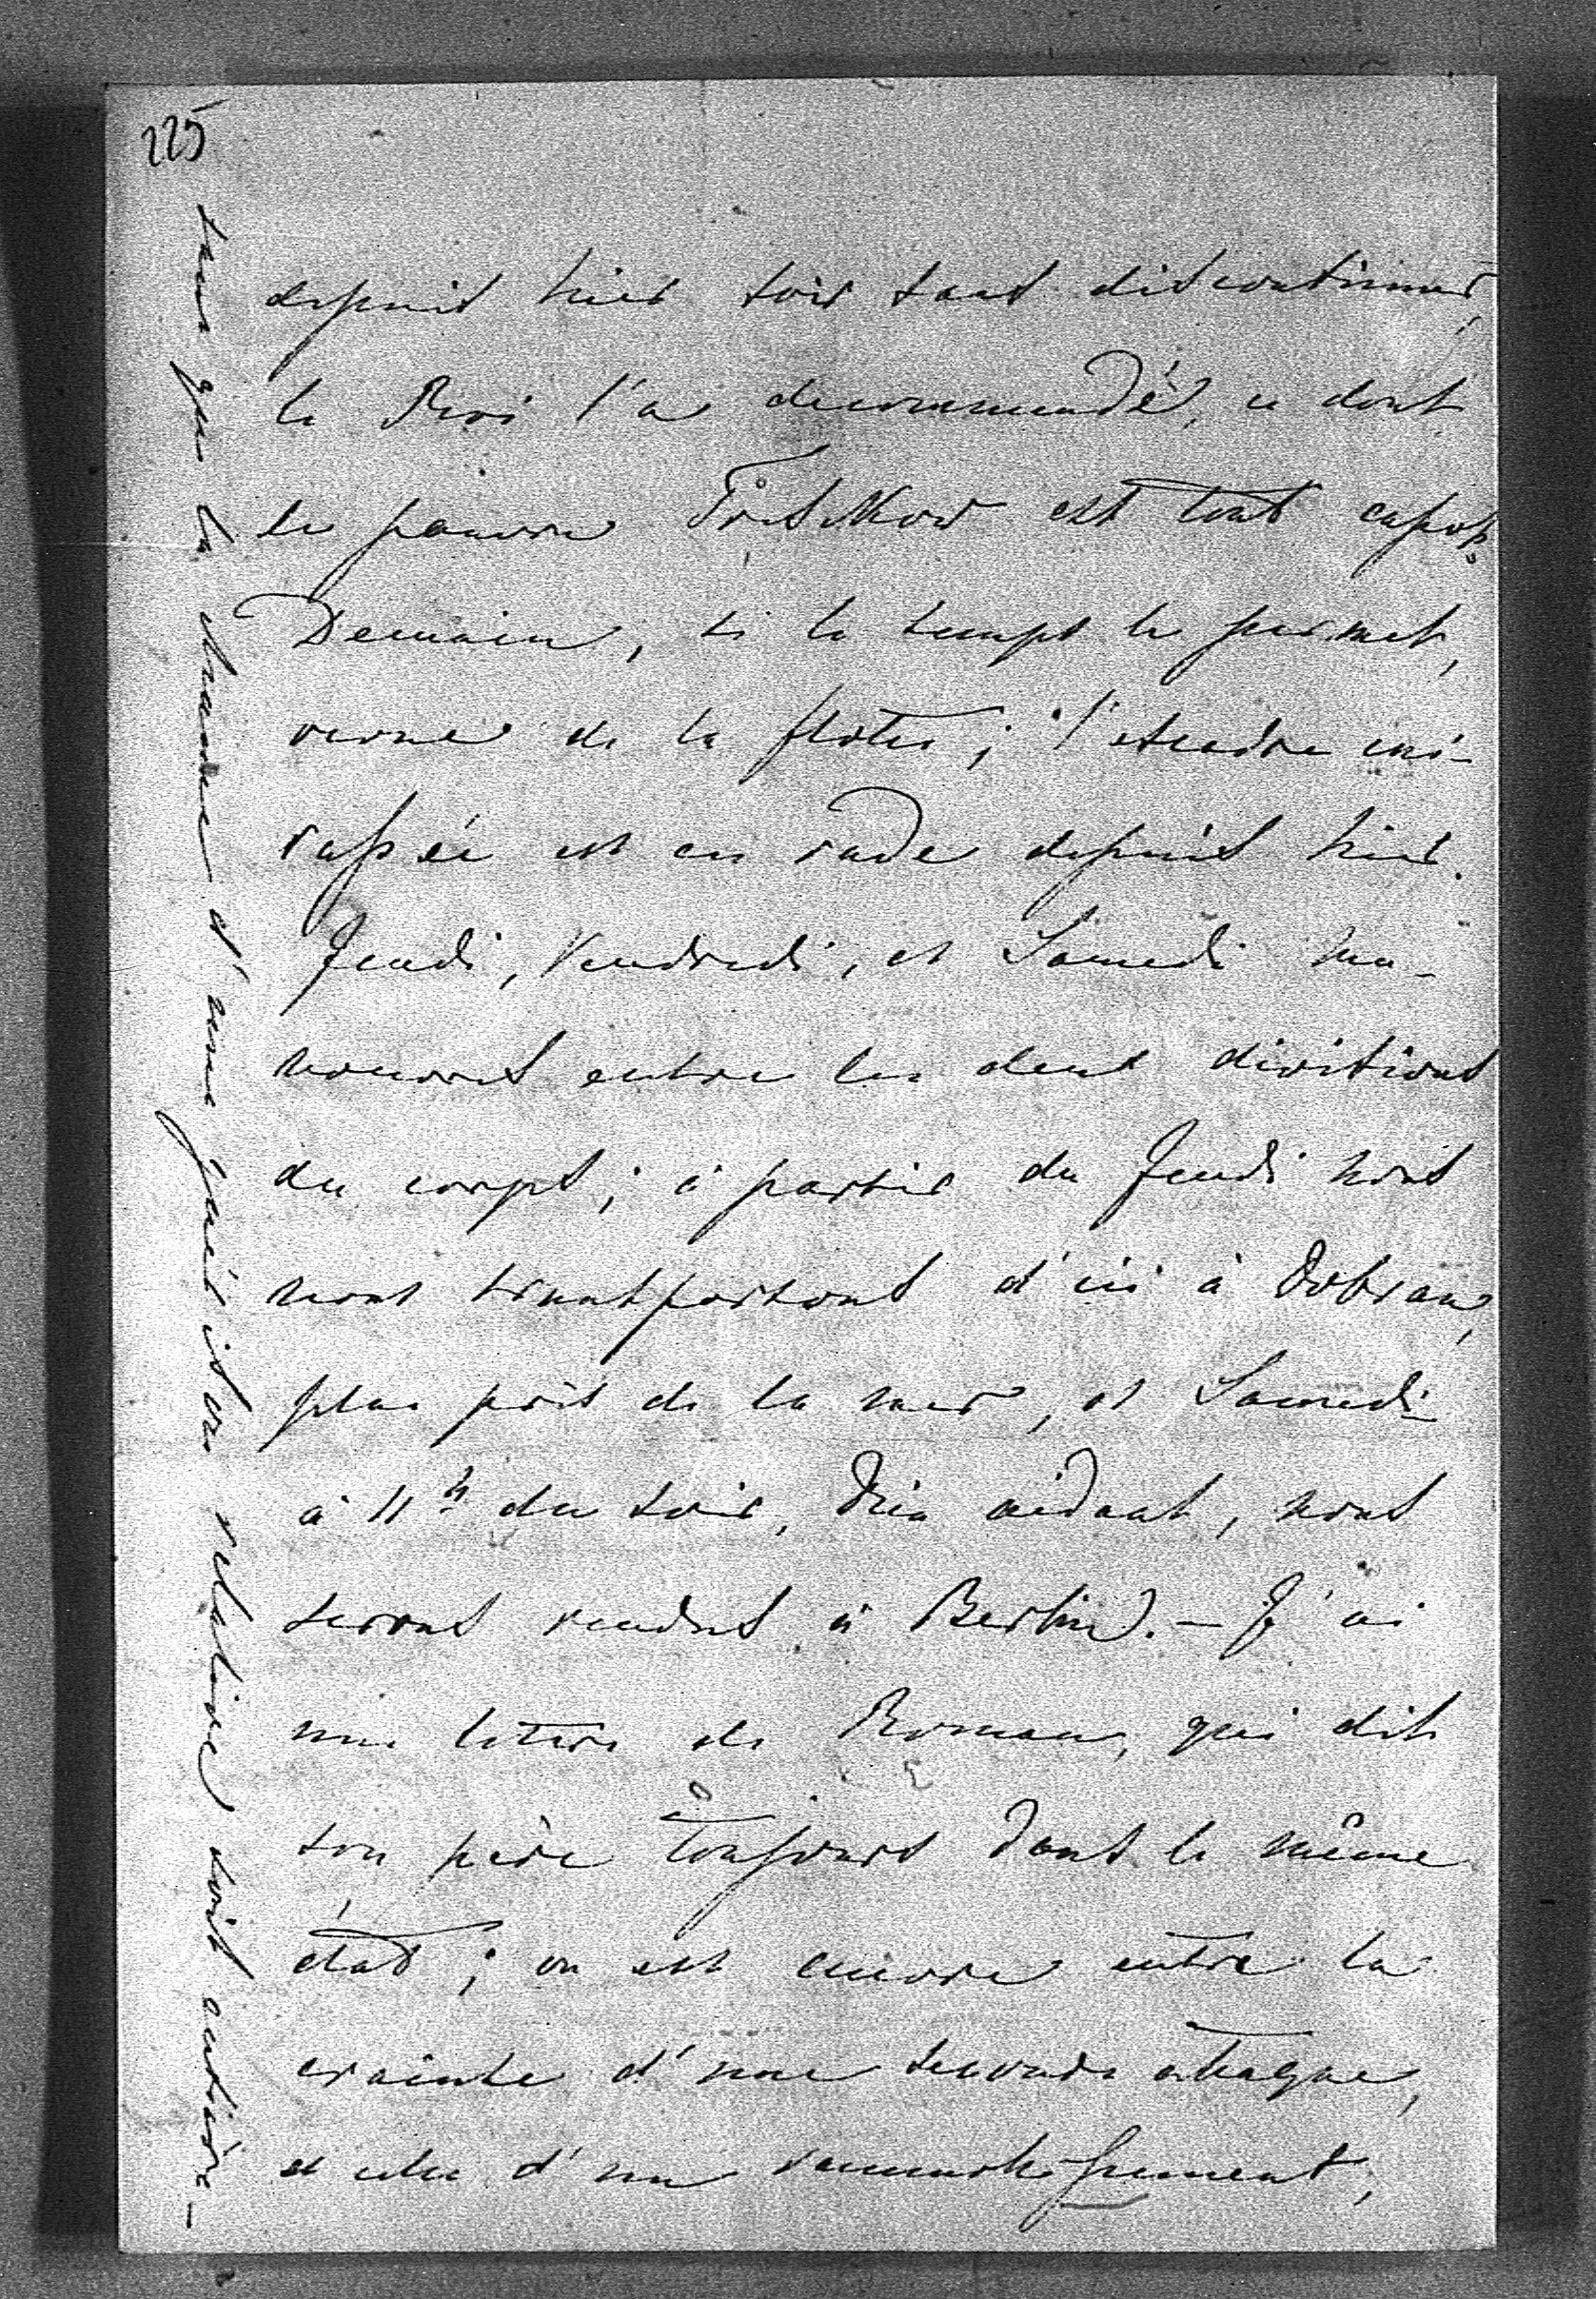 225
depuis hier soir sans discontinuer,
le Roi l'a decommandé, ce dont
le pauvre est tout capot.
Demain, si le temps le permet,
revue de la flotte; l'escadre cui-
rassée est en rade depuis hier.
Jeudi, Vendredi, et Samedi ma-
noeuvres entre les deux divisions
du corps; à partir du Jeudi nous
nous transportons d'ici à Dobran,
plus près de la mer, et Samedi
à 11h du soir, Dieu aidant, nous
serons rendus à Berlin. – J'ai
une lettre de Roman, qui dit
son père toujours dans le même
état; on est encore entre la
crainte d'une seconde attaque,
et celle d'un ramollissement,
sans que la chance d'une guérison relative soit entière-